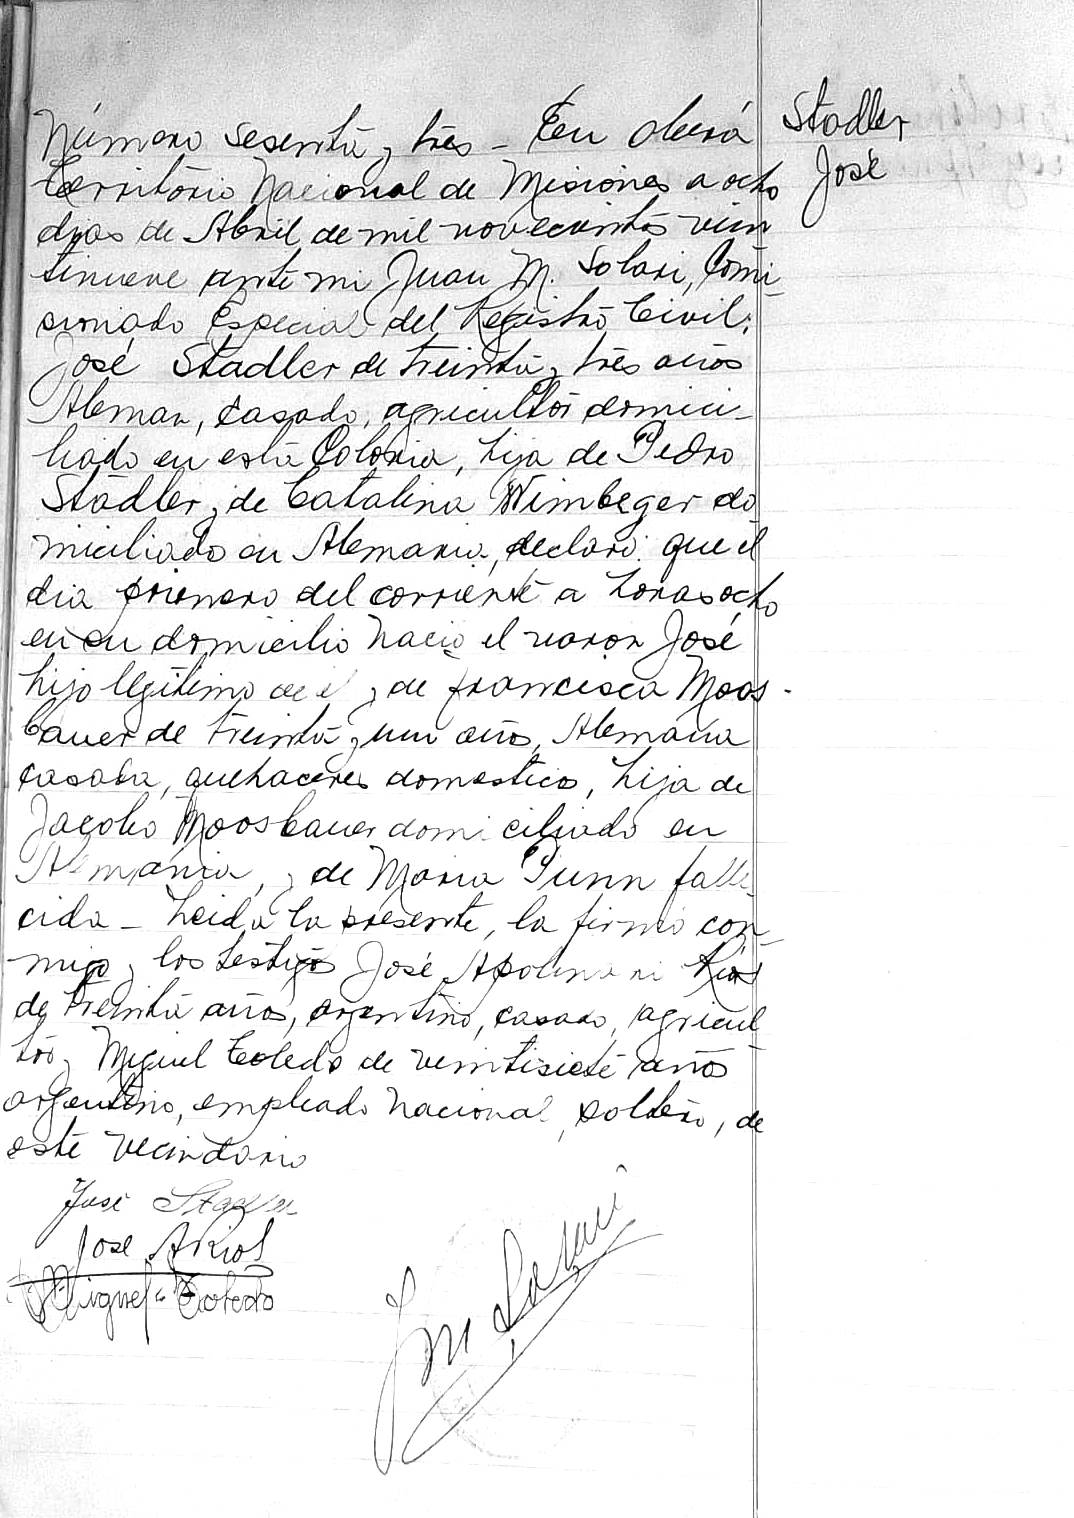 Stadler
José
Número sesenta y tres - En Oberá
Territorio Nacional de Misiones a ocho
dias de Abril de mil novecientos vein
tinueve ante mi Juan M. Solari, Comi-
sionado Especial del Registro Civil:
José Stadler de treinta y tres años
Aleman, casado, agricultor domici-
liado en esta Colonia, hijo de Pedro
Stadler y de Catalina Wimbeger do
miciliado en Alemania, declaró: que el
dia primero del corriente a horas ocho
en su domicilio nació el varon José
hijo legitimo de el y de Francisca Moos-
bauer de treinta y un años, Alemana
casada, quehaceres domestico, hija de
Jacobo Moosbauer domiciliado en
Alemania, y de Maria Punn falle
cida - Leida la presente, la firmó con-
migo y los testigos José Apolinari Rios
de treinta años, argentino, casado, agricul
tor y Miguel Toledo de veintisiete años
argentino, empleado nacional, soltero, de
este vecindario
José Stadler
Jose A Rios
Miguel Toledo
J M Solari